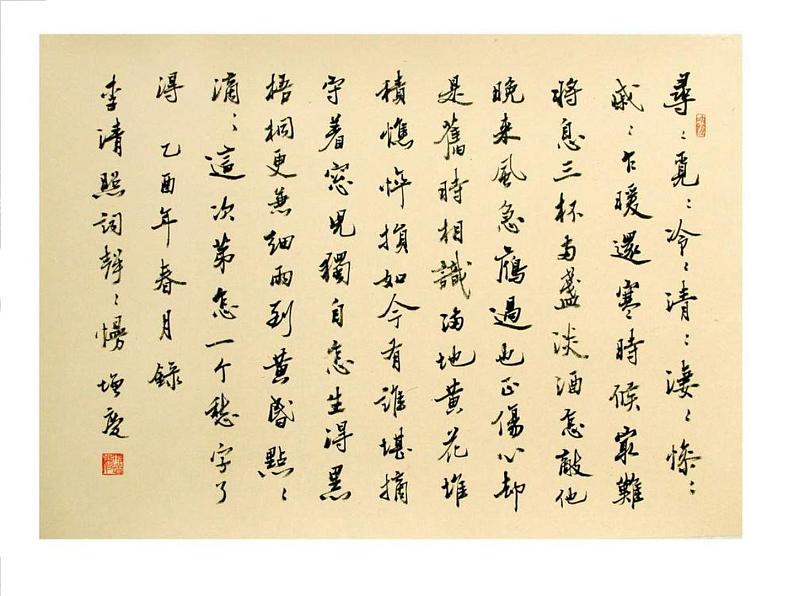 尋〻覓〻冷〻清〻淒〻慘〻
戚〻乍暖還寒時候冣難
將息三杯兩盞淡酒怎敵他
晚来風急鴈過也正傷心却
是舊時相識滿地黃花堆
積憔悴損如今有誰堪摘
守着窓兒獨自怎生得黑
梧桐更兼細雨到黃昏點〻
滴〻這次第怎一个愁字了
得 乙酉年春月錄
李清照詞聲〻慢 增慶